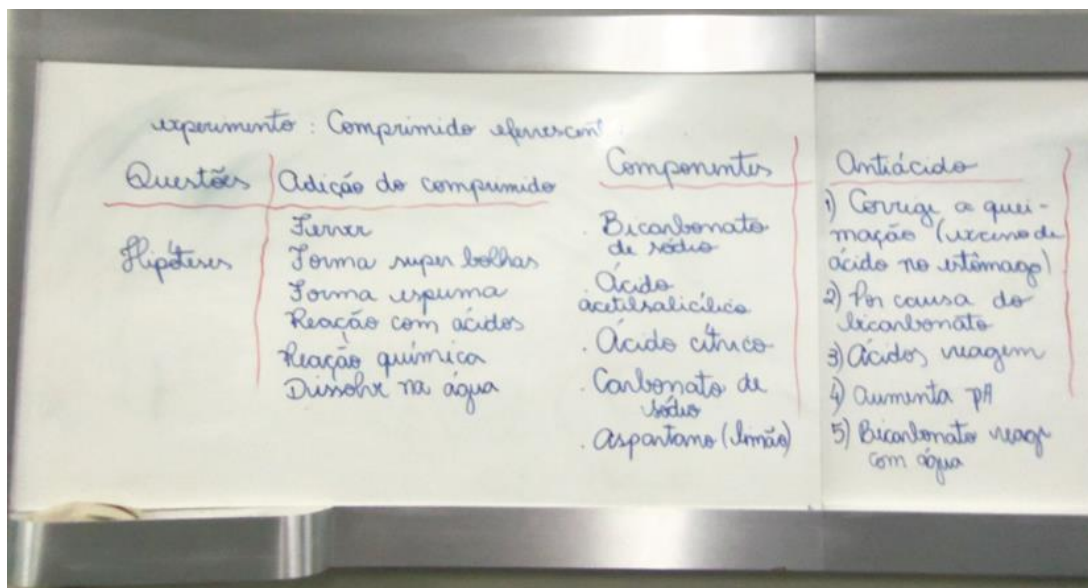 experimento : Comprimido efervescent
Questões
Hipóteses
Adição do comprimido
Ferver
Forma super bolhas
Forma espuma
Reação com ácidos
Reação química
Dissolve na água
Componentes
. Bicarbonato
de sódio
. Ácido
acetilsalicílico
. Ácido cítrico
. Carbonato de
sódio
. Aspartamo (limão)
Antiácido
1) Corrige a quei-
mação (excesso de
ácido no estômago)
2) Por causa do
bicarbonato
3) Ácidos reagem
4) Aumenta pH
5) Bicarbonato reage
com água